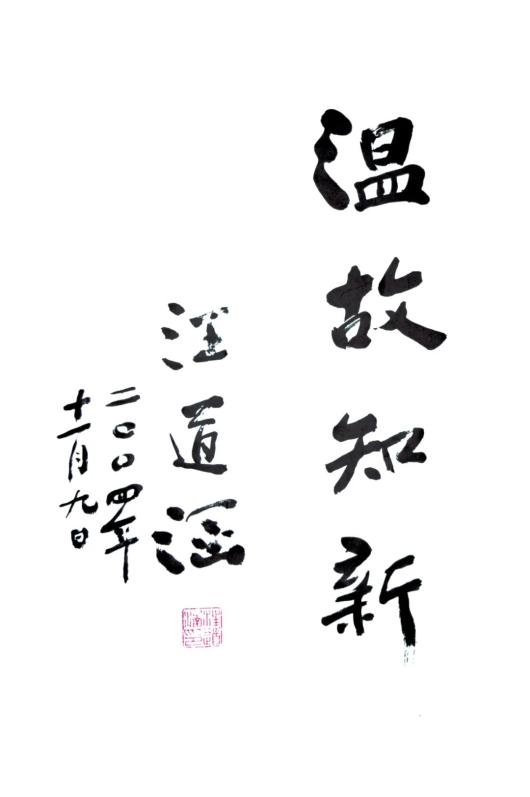 温故知新
汪道涵
二〇〇四年
十一月九日